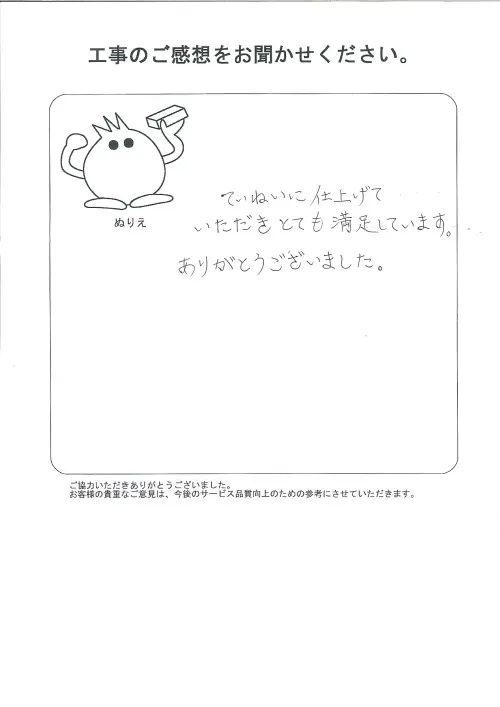 工事のご感想をお聞かせください。
ぬりえ
ていねいに仕上げて
いただきとても満足しています。
ありがとうございました。
ご協力いただきありがとうございました。
お客様の貴重なご意見は、今後のサービス品質向上のための参考にさせていただきます。